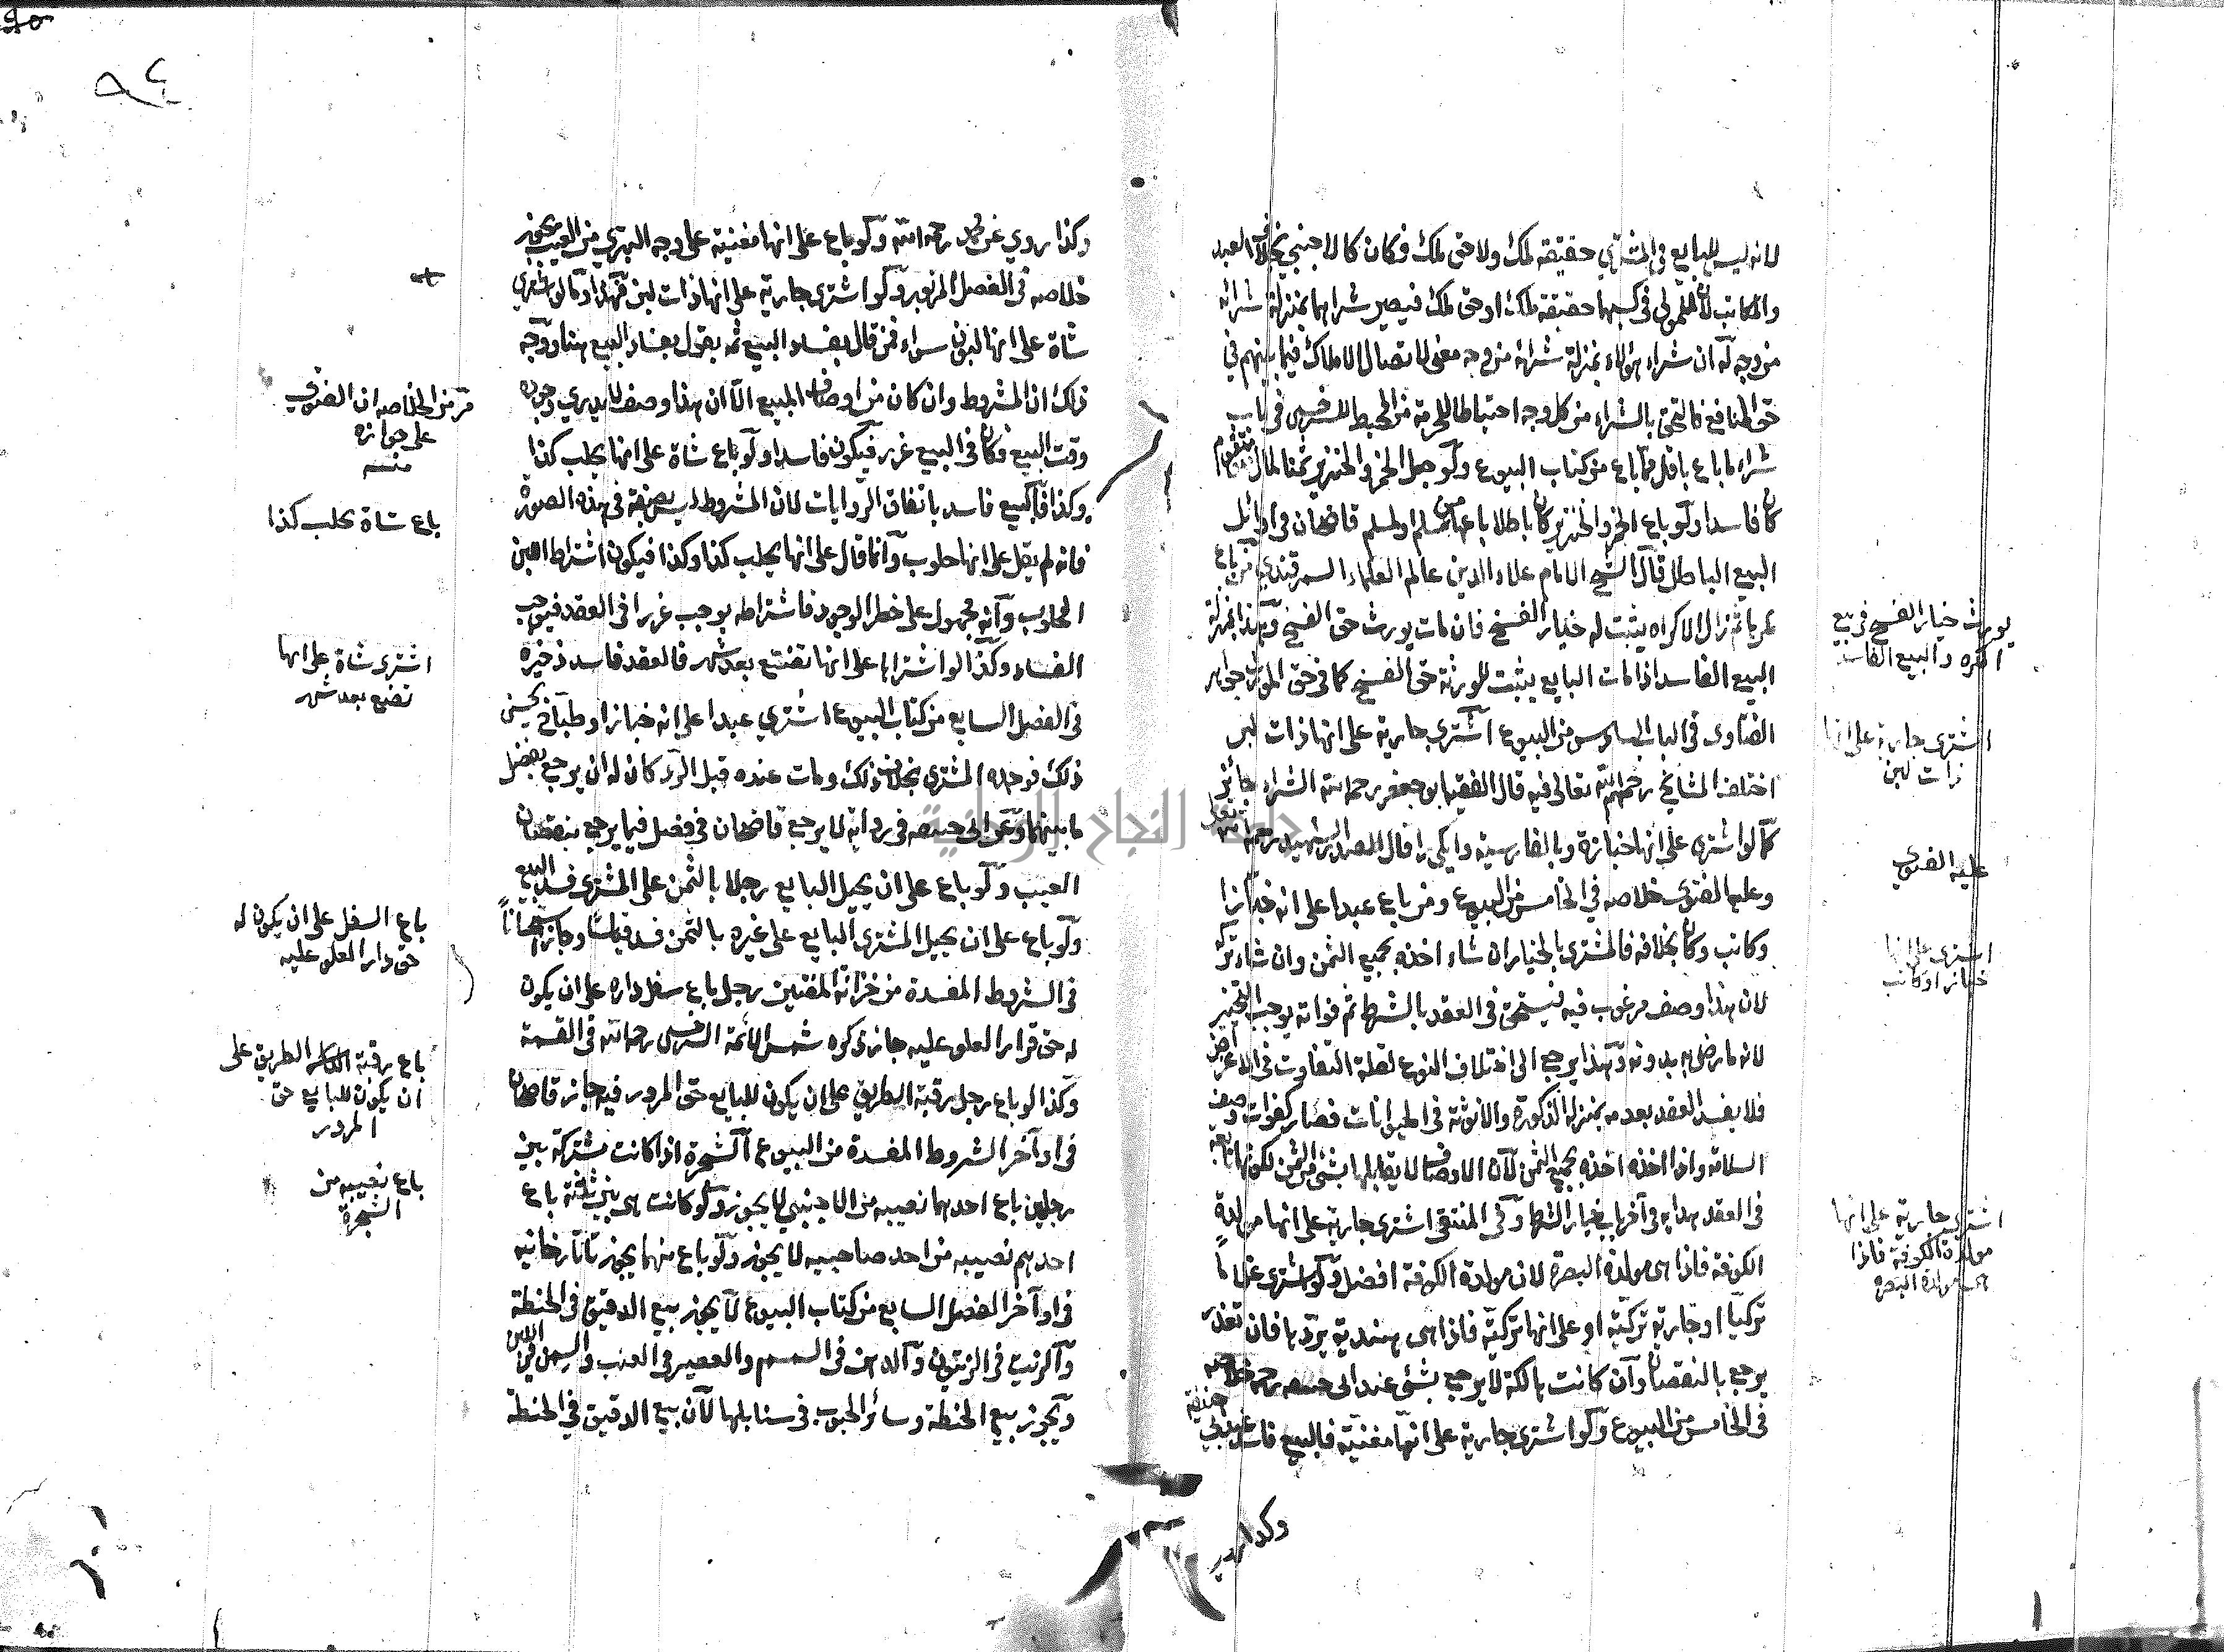 لانه ليس للبايع في المشتري حقيقة ملك ولا حق ملك فكان كالاجنبي بخلاف العبد
والمكاتب لان للمولى في كسبهما حقيقة ملك او حق ملك فيصير شراهما بمنزلة شرائه
من وجه له ان شراء هؤلاء بمنزلة شرائه من وجه معنى لاتصال الاملاك فيما بينهم في
حق المنافع فالتحق بالشراء من كل وجه احتياطا للحرمة من المحيط للسرخسي في باب
شراء ما باع باقل مما باع من كتاب البيوع ولو جعل الخمر والخنزير ثمنا لمال متقوم
كان فاسدا ولو باع الخمر والخنزير كان باطلا باعه من مسلم او لمسلم قاضيخان في اوائل
البيع الباطل قال الشيخ الامام علاء الدين عالم العلماء السمرقندي من باع
مكرها ثم زال الاكراه يثبت له خيار الفسخ فان مات يورث حق الفسخ وهذا بمنزلة
البيع الفاسد اذا مات البايع يثبت للورثة حق الفسخ كما في حق المورث جواهر
الفتاوى في الباب السادس من البيوع اشترى جارية على انها ذات لبن
اختلف المشايخ رحمهم الله تعالى فيه قال الفقيه ابو جعفر رحمه الله الشراء جائز
كما لو اشترى على انها خبازة وبالفارسية قال الصدر الشهيد رحمه الله تعالى
وعليه الفتوى خلاصه في الخامس من البيوع ومن باع عبدا على انه خباز او
وكاتب وكان بخلافه فالمشترى بالخيار ان شاء اخذه بجميع الثمن وان شاء تركه
لان هذا وصف مرغوب فيه فيستحق في العقد بالشرط ثم فواته يوجب التخيير
لانه ما رضى به بدونه وهذا يرجع الى اختلاف النوع لقلة التفاوت في الاغراض
فلا يفسد العقد بعدمه بمنزلة الذكورة والانوثة في الحيوانات فصار كفوات وصف
السلامة واذا اخذه اخذه بجميع الثمن لان الاوصاف لا يقابلها شئ من الثمن لكونها تابعة
في العقد هدايه في آخر باب خيار الشرط وفي المنتقى اشترى جارية على انها مولدة
الكوفة فاذا هى مولدة البصرة لان مولدة الكوفة افضل ولو اشترى غلاما
تركيا او جارية تركية او على انها تركية فاذا هى هندية يردها فان تعذر
يرجع بالنقصان وان كانت هالكة لا يرجع بشئ عند ابى حنيفه رحمه خلاصه
في الخامس من البيوع ولو اشترى جارية على انها مغنية فالبيع فاسد عند ابي حنيفة
يورث خيار الفسخ في بيع
المكره والبيع الفاسد
اشترى جارية على انها
ذات لبن
عليه الفتوى
اشترى على انها
خباز او كاتب
اشترى جارية على انها
مولدة الكوفة فاذا
هى مولدة البصره
وكذا روي
وكذا روي عن محمد رحمه الله ولو باع على انها مغنية على وجه التبري من العيب يجوز
خلاصه في الفصل المزبور ولو اشترى جارية على انها ذات لبن فهذا وما لو اشترى
شاة على انها لبون سواء فمن قال بفساد البيع ثمه يقول بفساد البيع هنا ووجه
ذلك ان المشروط وان كان من اوصاف المبيع الا ان هذا وصف لا يدري وجوده
وقت البيع فكان في البيع غرر فيكون فاسدا ولو باع شاة على انها يحلب كذا
وكذا فالبيع فاسد باتفاق الروايات لان المشروط ليس بصفة في هذه الصورة
فانه لم يقل على انها حلوب وانما قال على انها يحلب كذا وكذا فيكون اشتراط اللبن
المحلوب وانه مجهول على خطر الوجود فاشتراطه يوجب غررا في العقد فيوجب
الفساد وكذا لو اشتراها على انها تضع بعد شهر فالعقد فاسد ذخيرة
في الفصل السابع من كتاب البيوع اشترى عبدا على انه خباز او طباخ يحسن
ذلك فوجده المشترى بخلاف ذلك ومات عنده قبل الرد كان له ان يرجع بفضل
ما بينهما وعن ابى حنيفه في رواية لا يرجع قاضيخان في فصل فيما يرجع بنقصان
العيب ولو باع على ان يحيل البايع رجلا بالثمن على المشترى فسد البيع
ولو باع على ان يحيل المشترى البايع على غيره بالثمن فسد قياسا وجاز استحسانا
في الشروط المفسدة من خزانة المفتين رجل باع سفل داره على ان يكون
له حق قرار العلو عليه جاز ذكره شمس الائمة السرخسى رحمه الله في القسمة
وكذا لو باع رجل رقبة الطريق على ان يكون للبايع حق المرور فيه جاز قاضيخان
في اوآخر الشروط المفسدة من البيوع الشجرة اذا كانت مشتركة بين
رجلين باع احدهما نصيبه من الاجنبي لا يجوز ولو كانت بين ثلثة باع
احدهم نصيبه من احد صاحبيه لا يجوز ولو باع منهما يجوز تاتارخانيه
في اوآخر الفصل السابع من كتاب البيوع لا يجوز بيع الدقيق في الحنطة
والزيت في الزيتون والدهن في السمسم والعصير في العنب والسمن في اللبن
ويجوز بيع الحنطة وسائر الحبوب في سنابلها لان بيع الدقيق في الحنطة
مر من الخلاصه ان الفتوى
على جوازه
منه
باع شاة يحلب كذا
اشترى شاة على انها
تضع بعد شهر
باع السفل على ان يكون له
حق قرار العلو عليه
باع رقبة الطريق على
ان يكون للبايع حق
المرور
باع نصيبه من
الشجرة
جامعة النجاح الوطنية